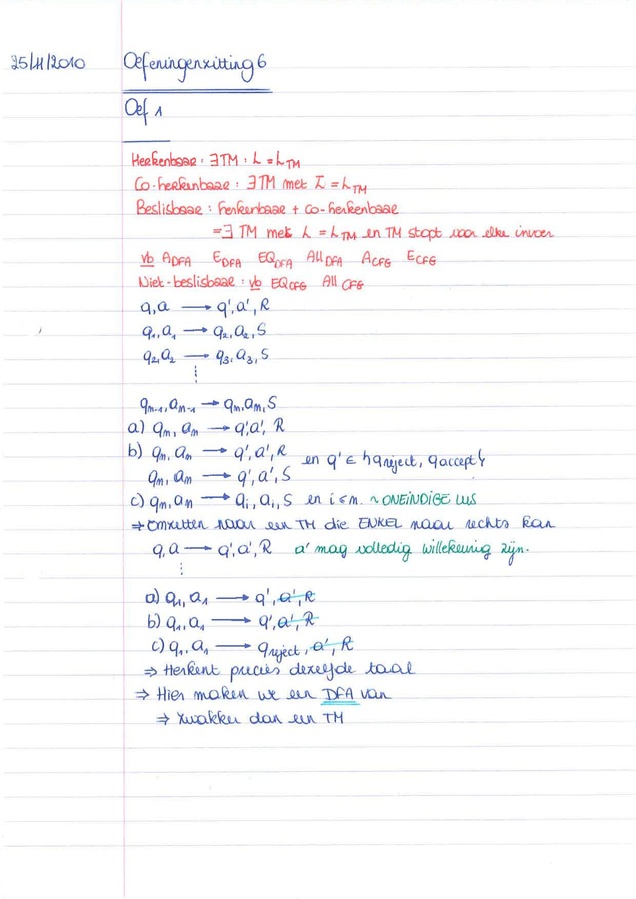 25/11/2010 Oefeningenzitting 6
Oef 1
Herkenbaar : ∃TM : L = L_TM
Co-herkenbaar : ∃TM met L̅ = L_TM
Beslisbaar : herkenbaar + co-herkenbaar
= ∃ TM met L = L_TM en TM stopt voor elke invoer
vb A_DFA E_DFA EQ_DFA All_DFA A_CFG E_CFG
Niet-beslisbaar : vb EQ_CFG All_CFG
q,a → q',a',R
q₁,a₁ → q₂,a₂,S
q₂,a₂ → q₃,a₃,S
⋮
qₘ₋₁,aₘ₋₁ → qₘ,aₘ,S
a) qₘ,aₘ → q',a',R
b) qₘ,aₘ → q',a',R en q' ∈ {qreject, qaccept}
qₘ,aₘ → q',a',S
c) qₘ,aₘ → qᵢ,aᵢ,S en i ≤ m. ~ ONEINDIGE LUS
⇒ Omzetten naar een TM die ENKEL naar rechts kan
q,a → q',a',R a' mag volledig willekeurig zijn.
⋮
a) q₁,a₁ → q',a',R
b) q₁,a₁ → q',a',R
c) q₁,a₁ → qreject,a',R
⇒ Herkent precies dezelfde taal
⇒ Hier maken we een DFA van
⇒ zwakker dan een TM